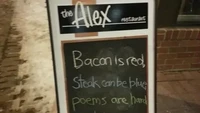 the Alex
restaurant
Bacon is red
Steak can be blue
poems are hard